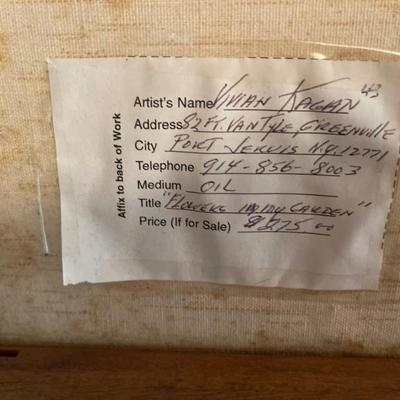 Affix to back of Work
Artist's Name VIVIAN KAGAN 43
Address 82 FT. VAN TYLE GREENVILLE
City PORT JERVIS N.Y. 12771
Telephone 914-856-8003
Medium OIL
Title "FLOWERS IN MY GARDEN"
Price (If for Sale) $275.00